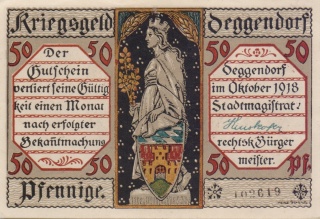 Kriegsgeld Deggendorf
50 50 50 50
Der
Gutschein
verliert seine Gültig
keit einen Monat
nach erfolgter
Bekañtmachung
50 50
Pfennige.
Deggendorf
im Oktober 1918
Stadtmagistrat:
rechtsk. Bürger
meister.
50 50 Pf.
102619